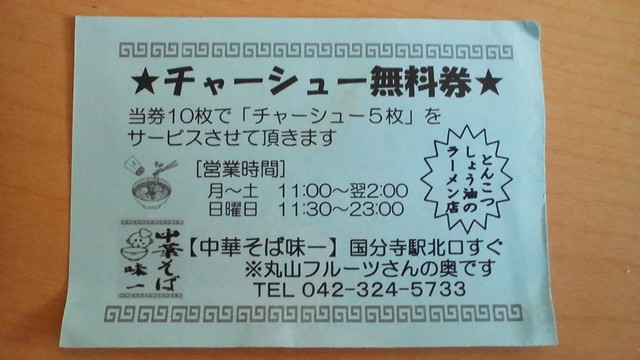 ★チャーシュー無料券★
当券10枚で「チャーシュー5枚」を
サービスさせて頂きます
[営業時間]
月〜土 11:00〜翌2:00
日曜日 11:30〜23:00
とんこつ
しょう油の
ラーメン店
中華そば
味一
【中華そば味一】国分寺駅北口すぐ
※丸山フルーツさんの奥です
TEL 042-324-5733